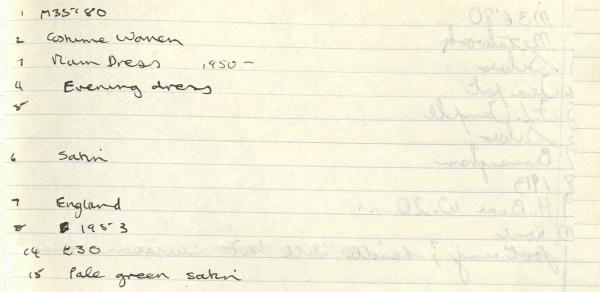 1 M35'80
2 Costume Women
3 Main Dress 1950-
4 Evening dress
5
6 Satin
7 England
8 1953
14 £30
15 Pale green satin